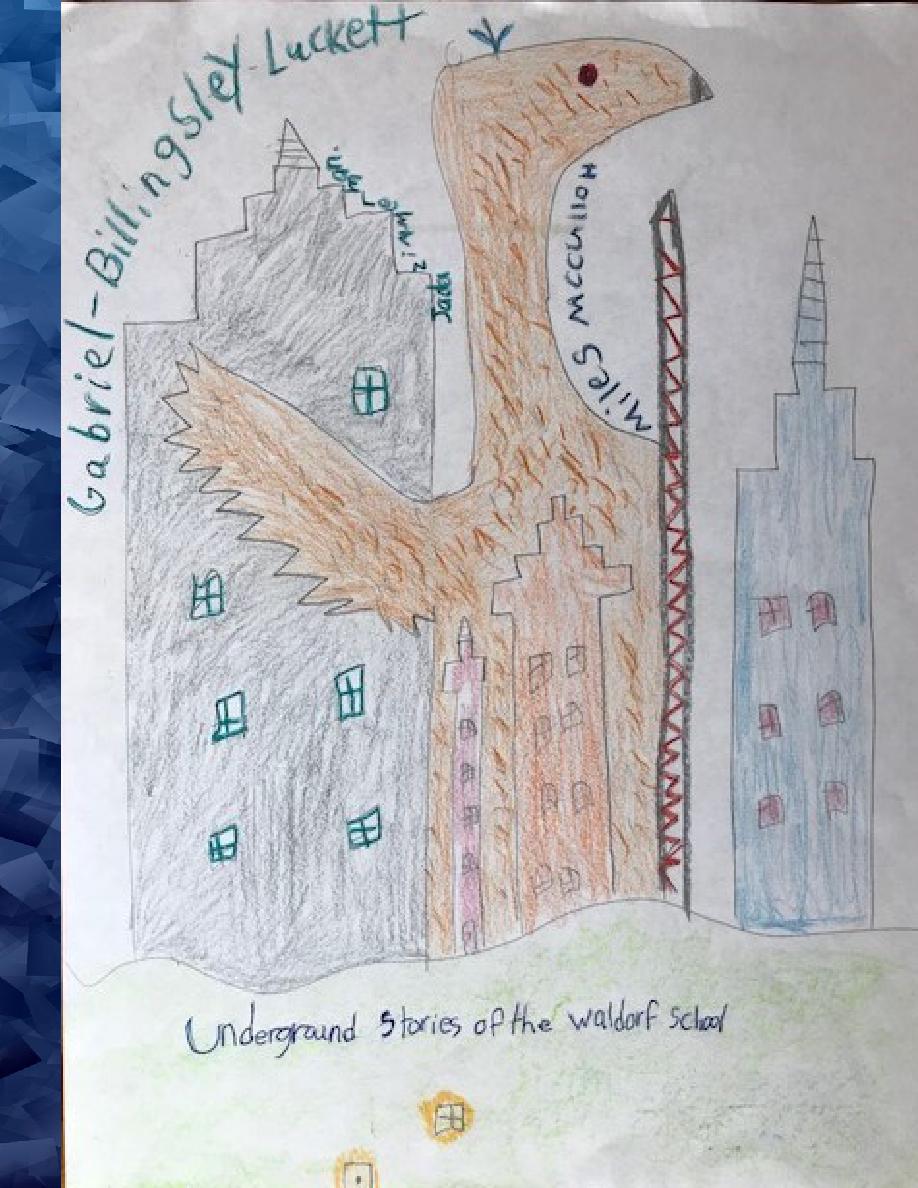 Gabriel-Billingsley-Luckett
Jada
Miles McCulloh
Underground Stories of the Waldorf School